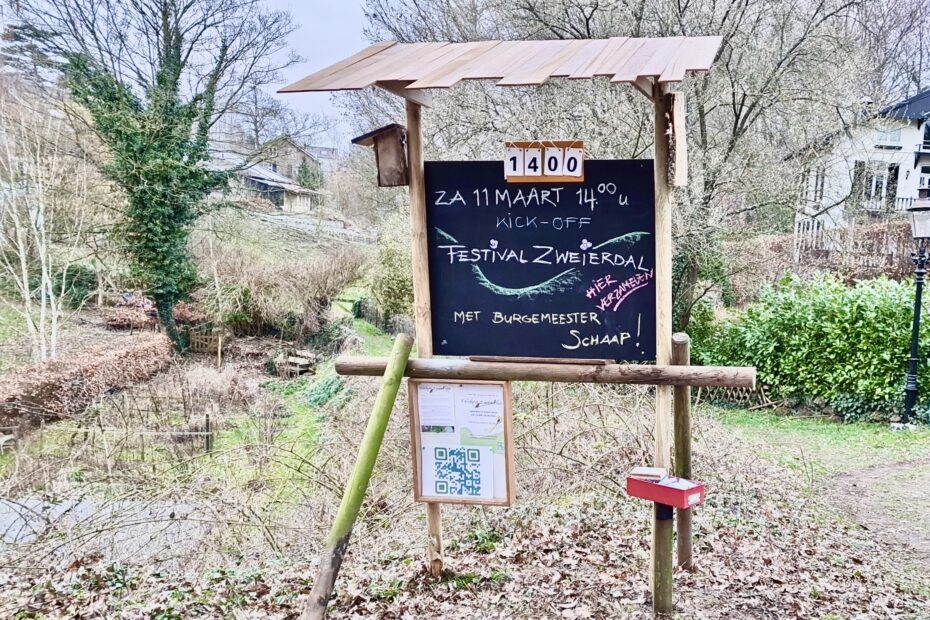 1400
ZA 11 MAART 14⁰⁰u
KICK-OFF
FESTIVAL ZWEIERDAL
HIER
VERZAMELEN
MET BURGEMEESTER
SCHAAP!